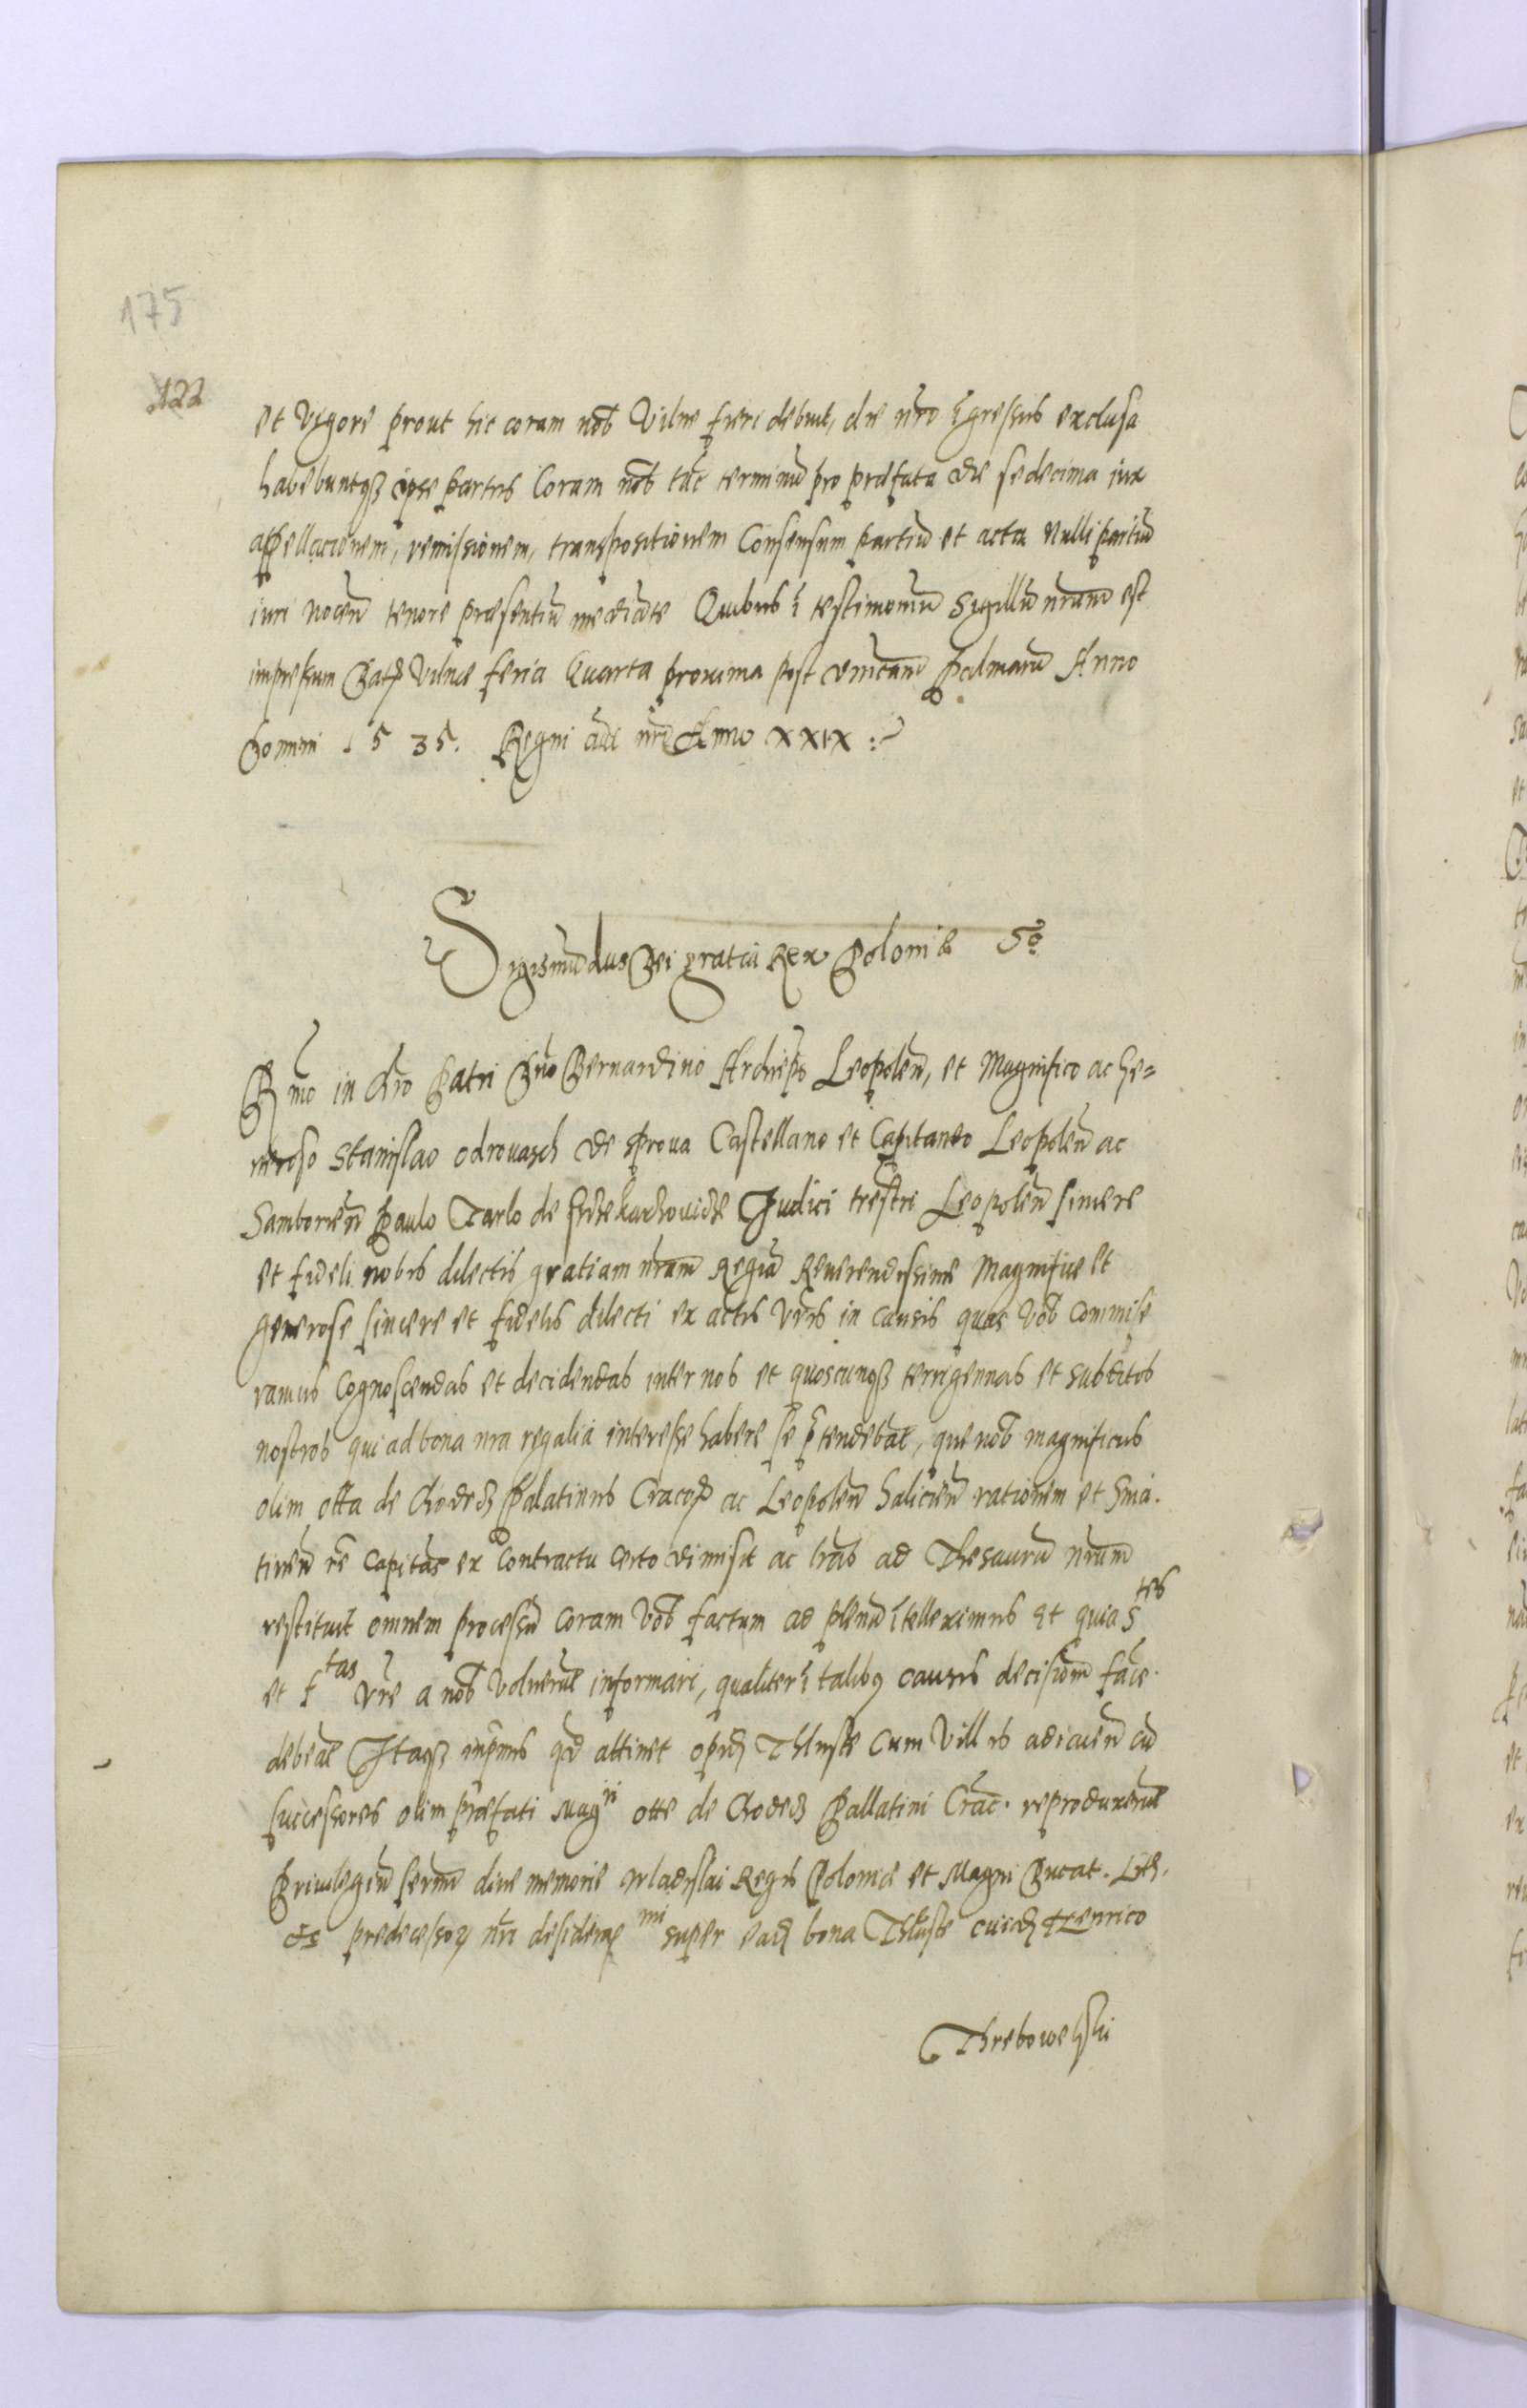 175
122
et vigore prout hic coram nob̃ Vilne fieri debuit, die nr̃o ĩgressus exclusa
habebuntqȝ ipse partes Coram nob̃ tũc terminũ pro præfata die sedecima iux
appellacionem, remissionem, transpositionem Consensum partiũ et acta Nulli partiũ
iuri nocen̄ tenore præsentiũ mediãte Quibus ĩ testimoniũ Sigillũ nr̃um est
impressum Datȝ Vilnæ feria Quarta proxima post Dnicam̃ Palmarũ Anno
Domini 1535. Regni adi nr̃i Anno XXIX :
Sigismũdus Dei gratia Rex Poloniæ
Rmo in Chro Patri Dno Bernardino Archiepo Leopolen̄, et Magnifico ac Ge=
neroso Stanislao Odrowasch de Sprova Castellano et Capitaneo Leopolen̄ ac
Samborien̄ Paulo Tarlo de Judici trestri Leopolen̄ sincere
et fideli nobis dilectis gratiam nr̃am Regiã Reverendissime Magnifice et
generose sincere et fideles dilecti ex actis Vr̃is in causis quas Vob̃ Commise
ramus Cognoscendas et decidendas inter nos et quoscunqȝ terrigennas et subditos
nostros qui ad bona nra regalia interesse habere se p̃tendebãt, que nob̃ magnificus
olim Otta de Chodecȝ Palatinus Cracoȝ ac Leopolen̄ Halicien̄ rationem et Snia.
tinen̄ re Capitãs ex Contractu certo dimisit ac lrãs ad Thesaurũ nr̃um
restituit omnem processũ coram Vob̃ factum ad plenũ ĩtelleximus Et quia S tes
et f tas Vr̃e a nob̃ voluerũt informari, qualiter ĩ talibȝ causis decisionẽ face.
debeãt Itaqȝ inp̃mis qd̃ attinet opid Thluste Cum Villis adiacen̄ cũ
successores olim præfati Mag ci Otte de Chodecȝ Pallatini Crac̃. reproduxerũt
Privilegiũ serm̃ dive memorie Wladislai Regis Poloniæ et Magni Ducat. Lth.
predecessoȝ nr̃i desiderat mi super ead bona Thluste cuid Henrico
Threbowelski